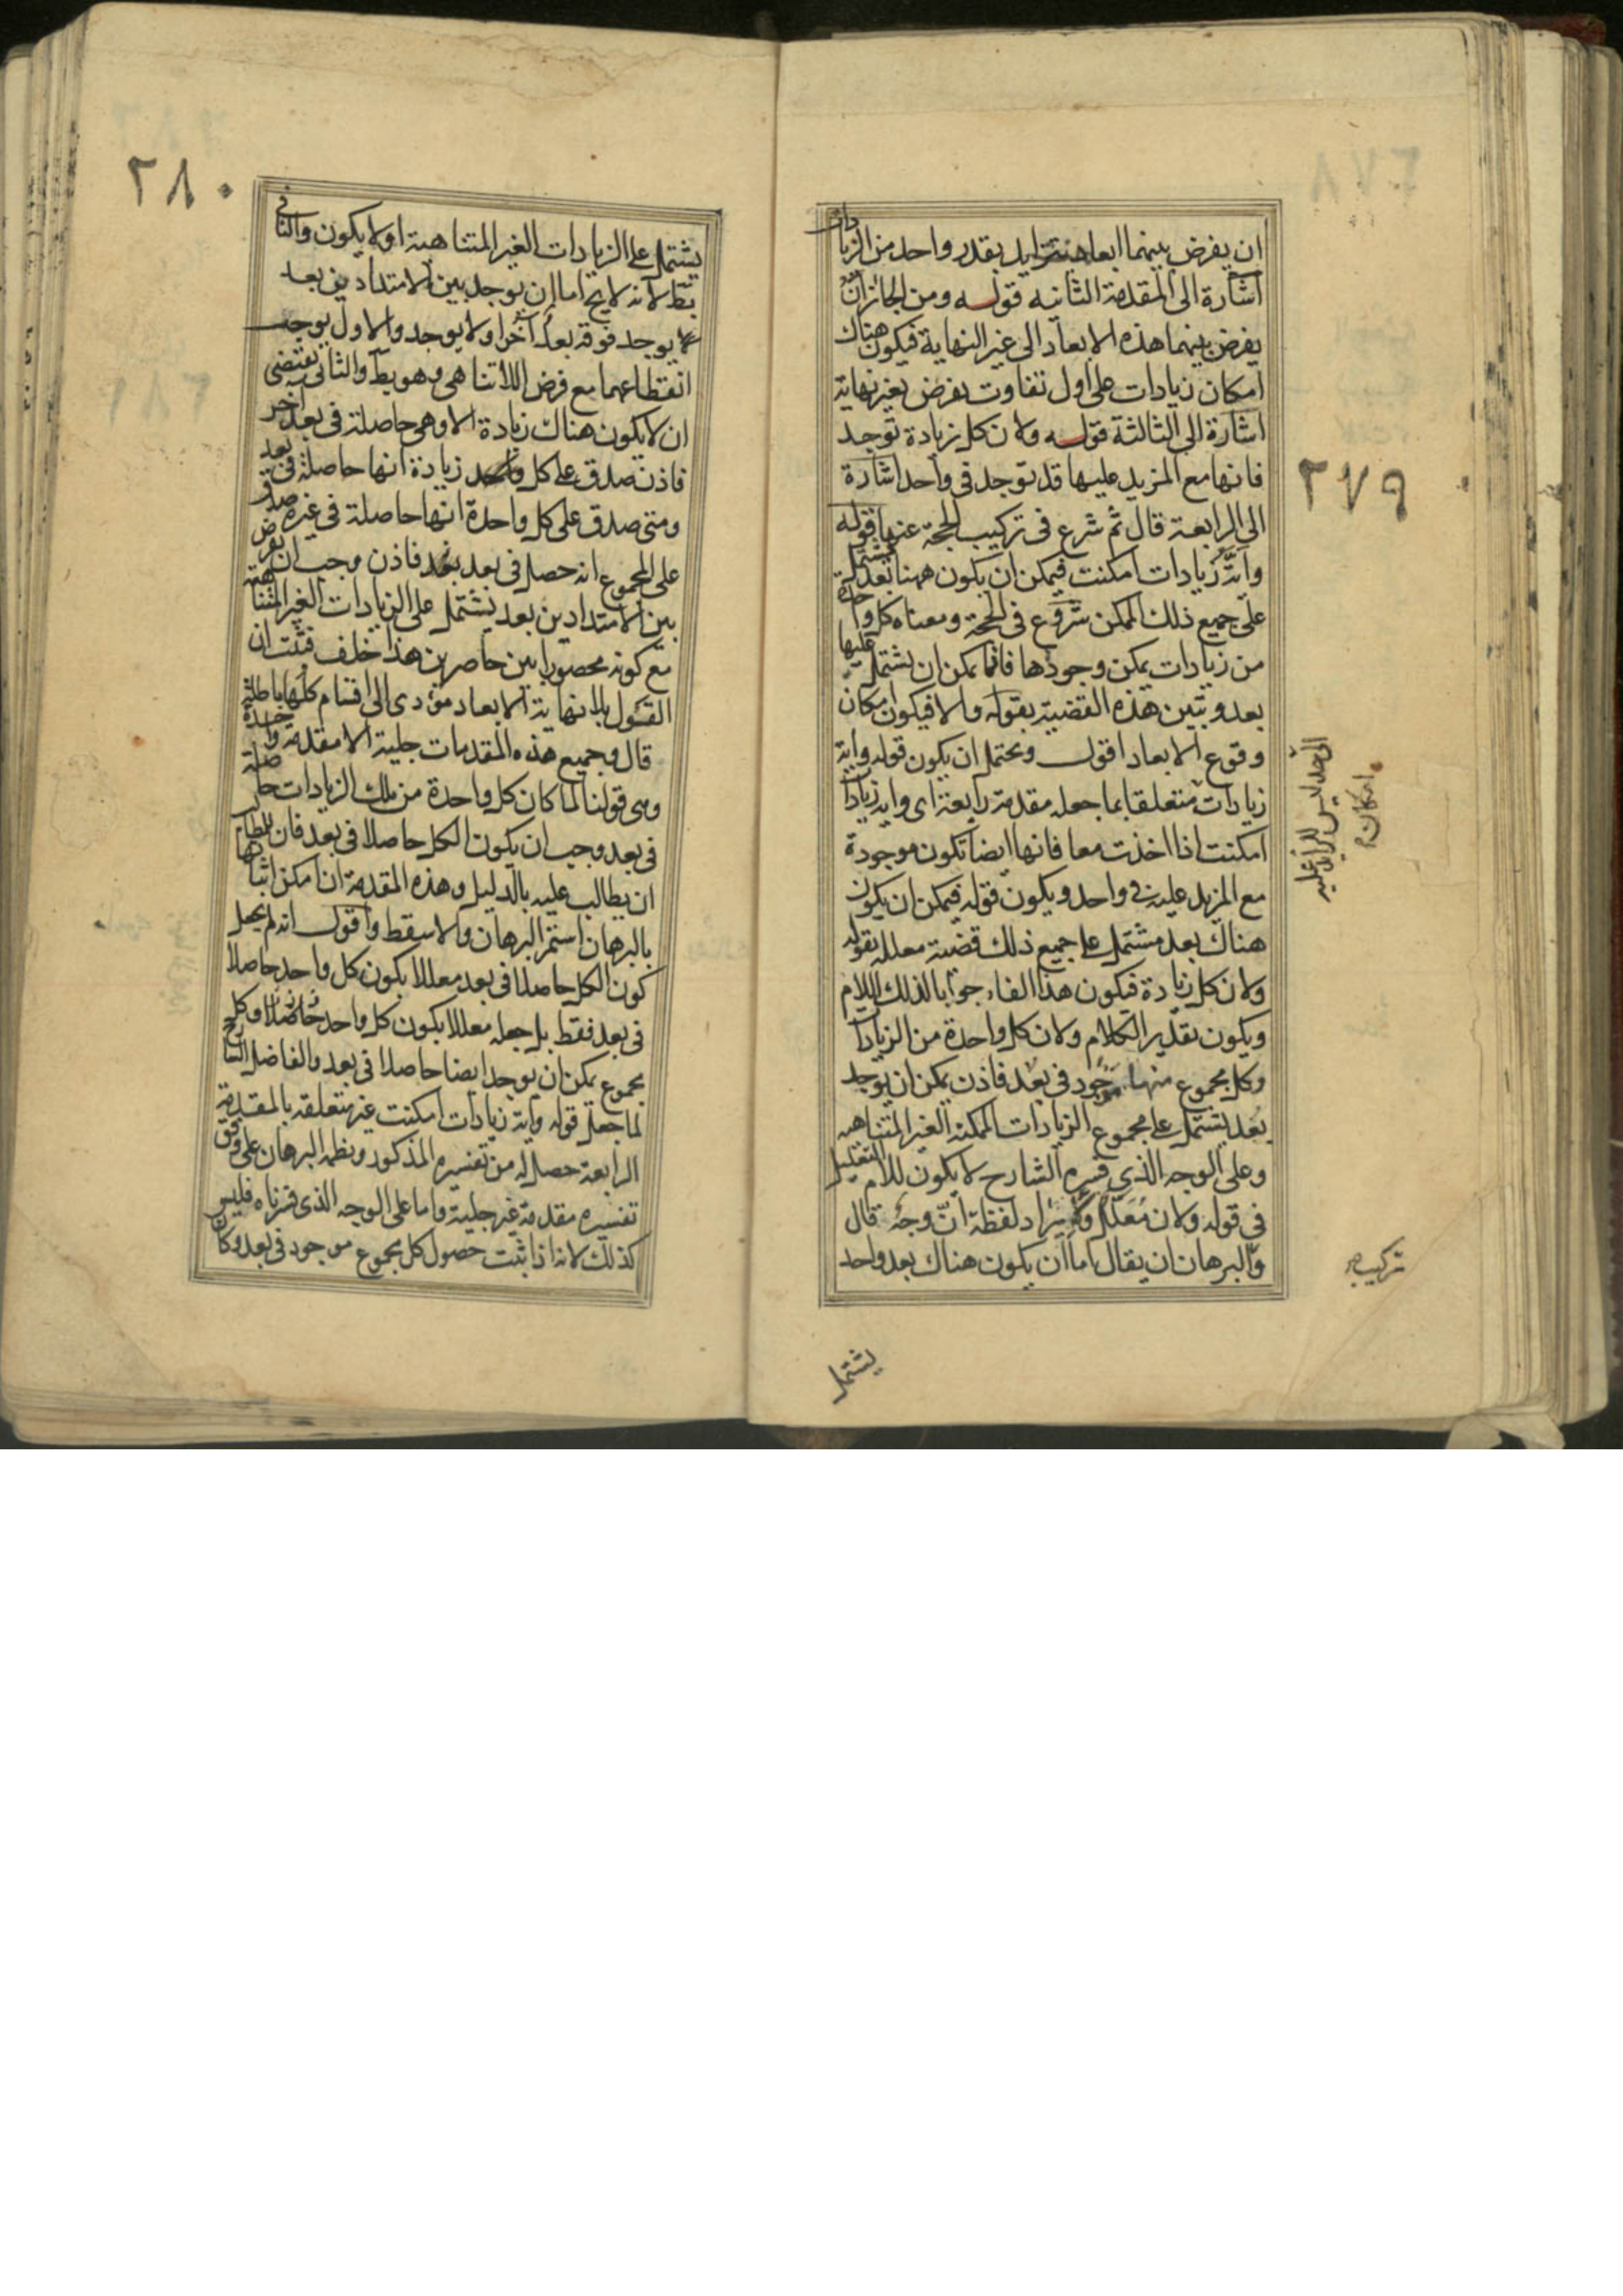 ٢٧٩
ان يفرض بينهما ابعاد تتزايد بقدر واحد من الزيادات
اشارة الى المقدمة الثانيه قوله ومن الجائز ان
يفرض بينهما هذه الابعاد الى غير النهاية فيكون هناك
امكان زيادات على اول تفاوت يفرض بغير نهاية
اشارة الى الثالثة قوله ولان كل زيادة توجد
فانها مع المزيد عليها قد توجد فى واحد اشارة
الى الرابعة قال ثم شرع فى تركيب الحجة عنها قوله
واَيَّة زيادات امكنت فيمكن ان يكون ههنا بُعد يشتمل
على جميع ذلك الممكن شروع فى الحجة ومعناه كل واحدة
من زيادات يمكن وجودها فانما يمكن ان يشتمل عليها
بعد وبيّن هذه القضية بقوله والا فيكون امكان
وقوع الابعاد اقول ويحتمل ان يكون قوله واية
زيادات متعلقا بما جعله مقدمة رابعة اى واية زيادات
امكنت اذا اخذت معا فانها ايضا تكون موجودة
مع المزيد عليه فى واحد ويكون قوله فيمكن ان يكون
هناك بعد مشتمل على جميع ذلك قضية معللة بقوله
ولان كل زيادة فيكون هذا الفاء جوابا لذلك اللام
ويكون تقدير الكلام ولان كل واحدة من الزيادات
وكل مجموع منها موجود فى بُعد فاذن يمكن ان يوجد
بُعد يشتمل على مجموع الزيادات الممكنة الغير المتناهيه
وعلى الوجه الذي فسره الشارح لا يكون للام التعليل
فى قوله ولان مُعَلَّل ولا لايراد لفظة انّ وجهٌ قال
والبرهان ان يقال اما ان يكون هناك بعد واحد
الى حد ليس للزائد عليه
امكان
تركيب
يشتمل
٢٨٠
يشتمل على الزيادات الغير المتناهية او لا يكون والثانى
بط لانه لا يخ اما ان يوجد بين الامتدادين بعد
لا يوجد فوقه بعد آخر او لا يوجد والاول يوجب
انقطاعهما مع فرض اللاتناهى وهو بط والثانى يقتضى
ان لا يكون هناك زيادة الا وهى حاصلة فى بعد آخر
فاذن صدق على كل واحد زيادة انها حاصلة فى بعد
ومتى صدق على كل واحدة انها حاصلة فى غيره صدق
على المجموع انه حصل فى بعد فاذن وجب ان يفرض
بين الامتدادين بعد يشتمل على الزيادات الغير المتناهية
مع كونه محصورا بين حاصرين هذا خلف فثبت ان
القول بلا نهاية الابعاد مؤدى الى اقسام كلها باطلة
قال وجميع هذه المقدمات جلية الا مقدمة واحدة
وهى قولنا لما كان كل واحدة من تلك الزيادات حاصلة
فى بعد وجب ان يكون الكل حاصلا فى بعد فان للطالب
ان يطالب عليه بالدليل وهذه المقدمة ان امكن اثباتها
بالبرهان استمر البرهان والا سقط واقول انه لم يجعل
كون الكل حاصلا فى بعد معللا بكون كل واحد حاصلا
فى بعد فقط بل جعله معللا بكون كل واحد حاصلا وكل
مجموع يمكن ان يوجد ايضا حاصلا فى بعد والفاضل الشارح
لما جعل قوله واية زيادات امكنت غير متعلقة بالمقدمة
الرابعة حصل له من تفسيره المذكور ونظمه البرهان على وفق
تفسيره مقدمة غير جلية واما على الوجه الذى قررناه فليس
كذلك لانه اذا ثبت حصول كل مجموع موجود فى بعد وكان